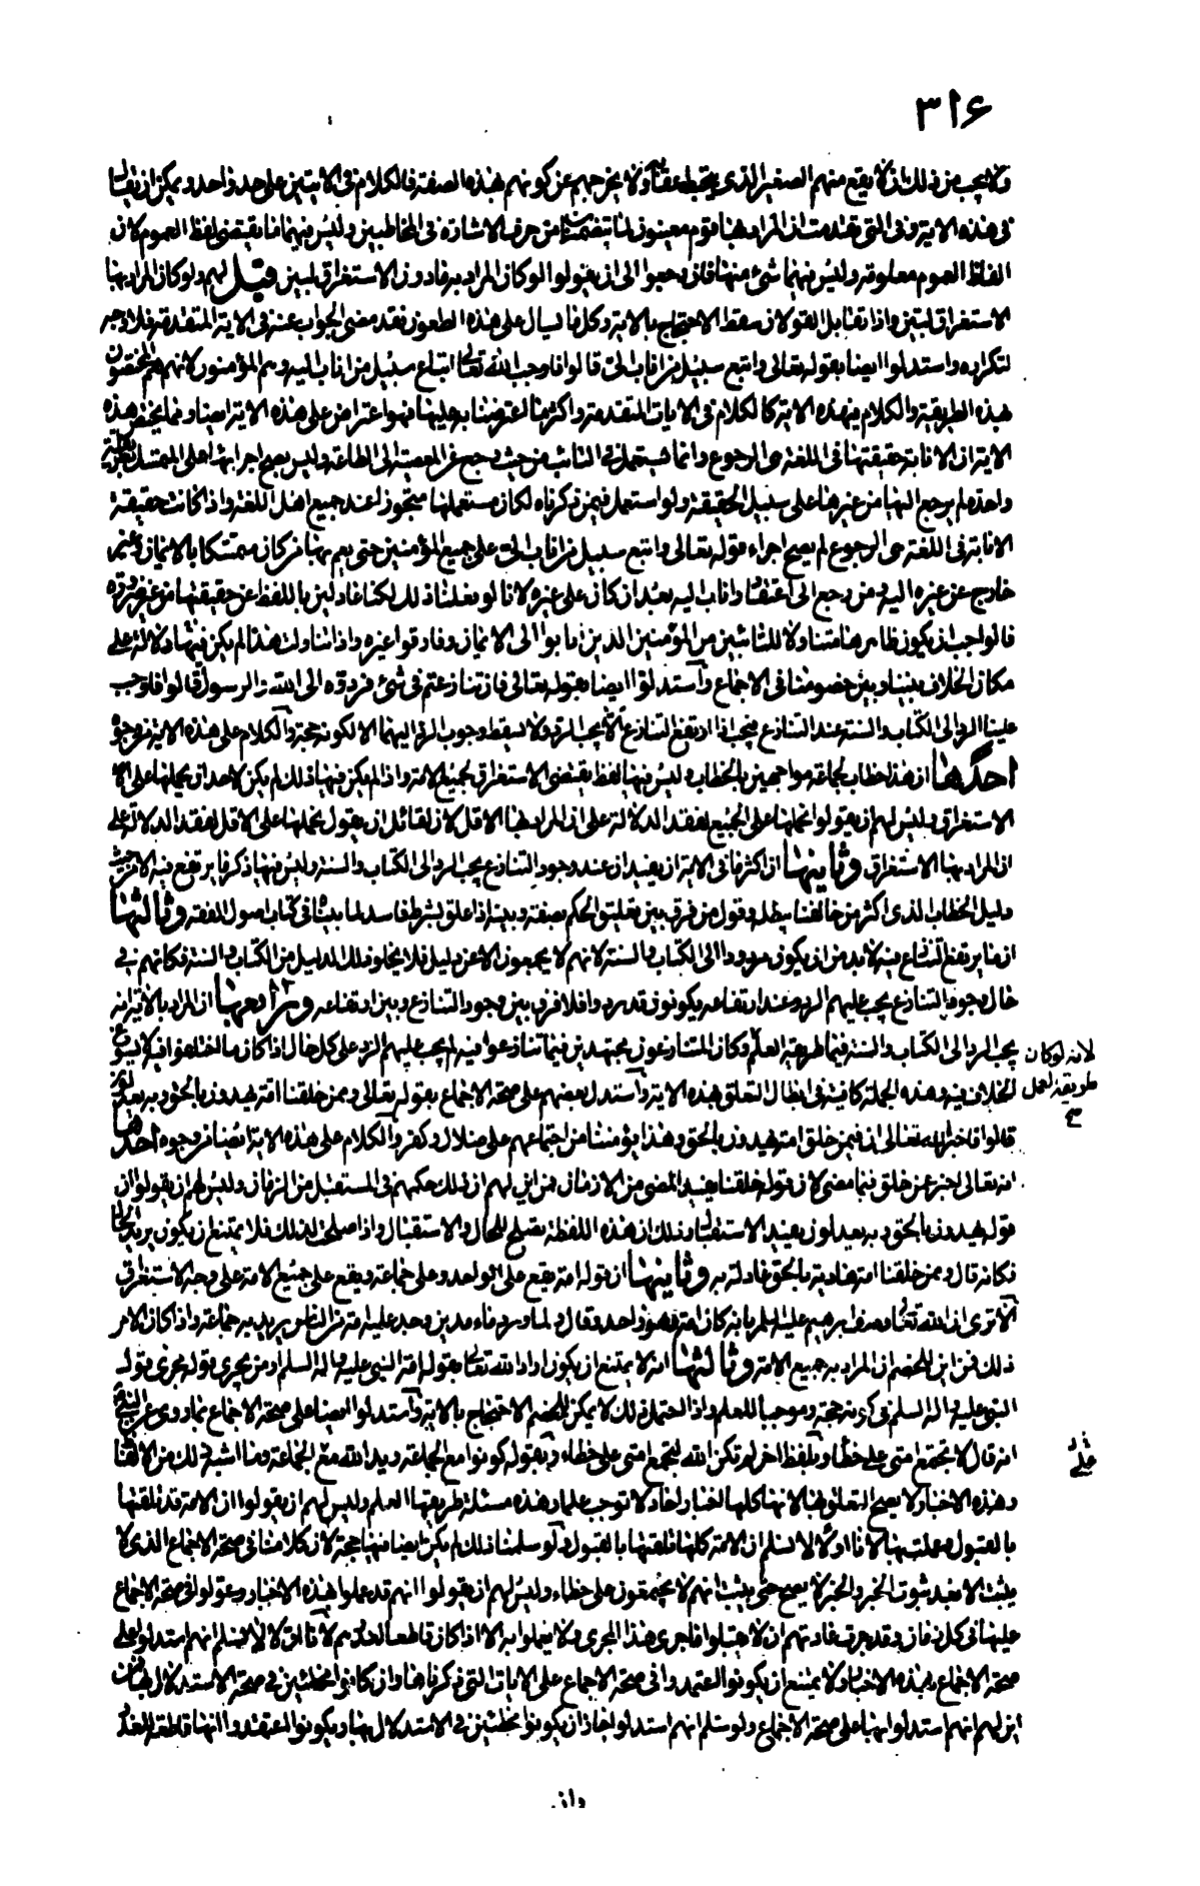 ٣١۶
ولا يجب من ذلك ان لا يقع منهم الصغير الذى يحبط عقابه ولا يخرجهم عن كونهم بهذه الصفة فالكلام فى الايتين على حد واحد ويمكن ان يقال
فى هذه الاية وفى التى تقدمت ان المراد بهما قوم معينون لما يتضمنان من حرف الاشارة فى المخاطبين وليس فيهما ما يقتضى لفظ العموم لان
الفاظ العموم معلومة وليس فيهما شئ منها فان رجعوا الى ان يقولوا لو كان المراد به ما دون الاستغراق لبين قيل لهم ولو كان المراد بها
الاستغراق لبين واذا تقابل القولان سقط الاحتجاج بالاية وكل ما يسال على هذه الطعون فقد مضى الجواب عنه فى الاية المتقدمة فلا وجه
لتكراره واستدلوا ايضا بقوله تعالى واتبع سبيل من اناب الى قالوا فاوجب الله تعالى اتباع سبيل من اناب اليه وهم المؤمنون لانهم هم المختصون
بهذه الطريقة والكلام فى هذه الاية كالكلام فى الايات المتقدمة واكثر ما اعترضنا به عليها فهو اعتراض على هذه الاية ايضا ومما يختص هذه
الاية ان الانابة حقيقتها فى اللغة هى الرجوع وانما تستعمل فى التائب من حيث رجع عن المعصية الى الطاعة وليس يصح اجراؤها على المتمسك بطريقة
واحدة لم يرجع اليها من غيرها على سبيل الحقيقة ولو استعمل فيمن ذكرناه لكان مستعملها متجوزا عند جميع اهل اللغة واذا كانت حقيقة
الانابة فى اللغة هى الرجوع لم يصح اجراء قوله تعالى واتبع سبيل من اناب الى على جميع المؤمنين حتى يعم بها من كان متمسكا بالايمان وغير
خارج عن غيره اليه ومن رجع الى اعتقاده واناب اليه بعد ان كان على غيره لانا لو فعلنا ذلك لكنا عادلين باللفظ عن حقيقتها من غير ضرورة
فالواجب ان يكون ظاهرها متناولا للتائبين من المؤمنين الذين انابوا الى الايمان وفارقوا غيره واذا تناولت هذا لم يكن فيها دلالة على
مكان الخلاف بيننا وبين خصومنا فى الاجماع واستدلوا ايضا بقوله تعالى فان تنازعتم فى شئ فردوه الى الله والرسول قالوا فاوجب
علينا الرد الى الكتاب والسنة عند التنازع فيجب اذا ارتفع التنازع الا يجب الرد ولا يسقط وجوب الرد اليهما الا لكونه حجة والكلام على هذه الاية من وجوه
احدها ان هذا خطاب لجماعة مواجهين بالخطاب وليس فيها لفظ يقتضى الاستغراق لجميع الامة واذا لم يكن فيها ذلك لم يكن لاحد ان يحملها على
الاستغراق وليس لهم ان يقولوا نحملها على الجميع لفقد الدلالة على ان المراد بها الاقل لان لقائل ان يقول نحملها على الاقل لفقد الدلالة على
ان المراد بها الاستغراق وثانيها ان اكثر ما فى الاية ان يفيد ان عند وجود التنازع يجب الرد الى الكتاب والسنة وليس فيها ذكر ما يرتفع فيه الا من حيث
دليل الخطاب الذى اكثر من خالفنا يبطله وقول من فرق بين تعليق الحكم بصفة وبينه اذا علق بشرط فاسد لما بيناه فى كتاب اصول الفقه وثالثها
ان ما يرتفع التنازع فيه لا بد من ان يكون مردودا الى الكتاب والسنة لانهم لا يجمعون الا عن دليل فلا يخلو ذلك الدليل من الكتاب والسنة فكانهم فى
حال وجود التنازع يجب عليهم الرد وعند ارتفاعه يكونون قد ردوا فلا فرق بين وجود التنازع وبين ارتفاعه ورابعها ان المراد بالاية انه
يجب الرد الى الكتاب والسنة فيما طريقه العلم وكان المتنازعون مجتهدين فيما تنازعوا فيه لم يجب عليهم الرد على كل حال اذا كان ما اختلفوا فيه يسوغ
لانه لو كان
طريقه العمل
الخلاف فيه وهذه الجملة كافية فى ابطال التعلق بهذه الاية واستدل بعضهم على صحة الاجماع بقوله تعالى وممن خلقنا امة يهدون بالحق وبه يعدلون
قالوا فاخبر الله تعالى ان فيمن خلق امة يهدون بالحق وهذا يؤمننا من اجتماعهم على ضلال وكفر والكلام على هذه الاية ايضا من وجوه احدها
انه تعالى اخبر عن خلق فيما مضى لان قوله خلقنا يفيد المضى من الازمان فمن اين لهم ان ذلك حكمهم فى المستقبل من الزمان وليس لهم ان يقولوا ان
قوله يهدون بالحق وبه يعدلون يفيد الاستقبال وذلك ان هذه اللفظة تصلح للحال والاستقبال واذا صلحت لذلك فلا يمتنع ان يكون يريد الحال
فكانه قال وممن خلقنا امة هادية بالحق عادلة به وثانيها ان قوله امة يقع على الواحد وعلى جماعة ويقع على جميع الامة على وجه الاستغراق
الا ترى ان الله تعالى وصف ابرهيم عليه السلم بانه كان امة وهو واحد وقال ولما ورد ماء مدين وجد عليه امة من الناس يريد به جماعة واذا كان الامر
ذلك فمن اين للخصم ان المراد به جميع الامة وثالثها انه لا يمتنع ان يكون اراد الله تعالى بقوله امة النبى عليه واله السلم ومن يجرى قوله مجرى قوله
النبى عليه واله السلم فى كونه حجة وموجبا للعلم واذا احتمل ذلك لا يمكن للخصم الاحتجاج بالاية واستدلوا ايضا على صحة الاجماع بما روى عن النبى
انه قال لا تجتمع امتى على خطاء وبلفظ اخر لم يكن الله ليجمع امتى على خطاء وبقوله كونوا مع الجماعة ويد الله مع الجماعة وما اشبه ذلك من الالفاظ
وهذه الاخبار لا يصح التعلق بها لانها كلها اخبار احاد لا توجب علما وهذه مسئلة طريقها العلم وليس لهم ان يقولوا ان الامة قد تلقتها
بالقبول وعملت بها لانا اولا لا نسلم ان الامة كلها تلقتها بالقبول ولو سلمنا ذلك لم يكن ايضا فيها حجة لان كلامنا فى صحة الاجماع الذى لا
يثبت الا بعد ثبوت الخبر والخبر لا يصح حتى يثبت انهم لا يجمعون على خطاء وليس لهم ان يقولوا انهم قد عملوا بهذه الاخبار وعولوا فى صحة الاجماع
عليها فى كل زمان وقد جرت عادتهم ان لا يقبلوا ما جرى هذا المجرى ولا يعملوا به الا اذا كان قاطعا للعذر لانا لا نسلم انهم استدلوا على
صحة الاجماع بهذه الاخبار ولا يمتنع ان يكونوا اعتمدوا فى صحة الاجماع على الايات التى ذكرناها وان كانوا مخطئين فى صحة الاستدلال بها فمن
اين لهم انهم استدلوا بها على صحة الاجماع ولو سلم انهم استدلوا بها جاز ان يكونوا مخطئين فى الاستدلال بها ويكونوا اعتقدوا انها قاطعة للعذر
وان